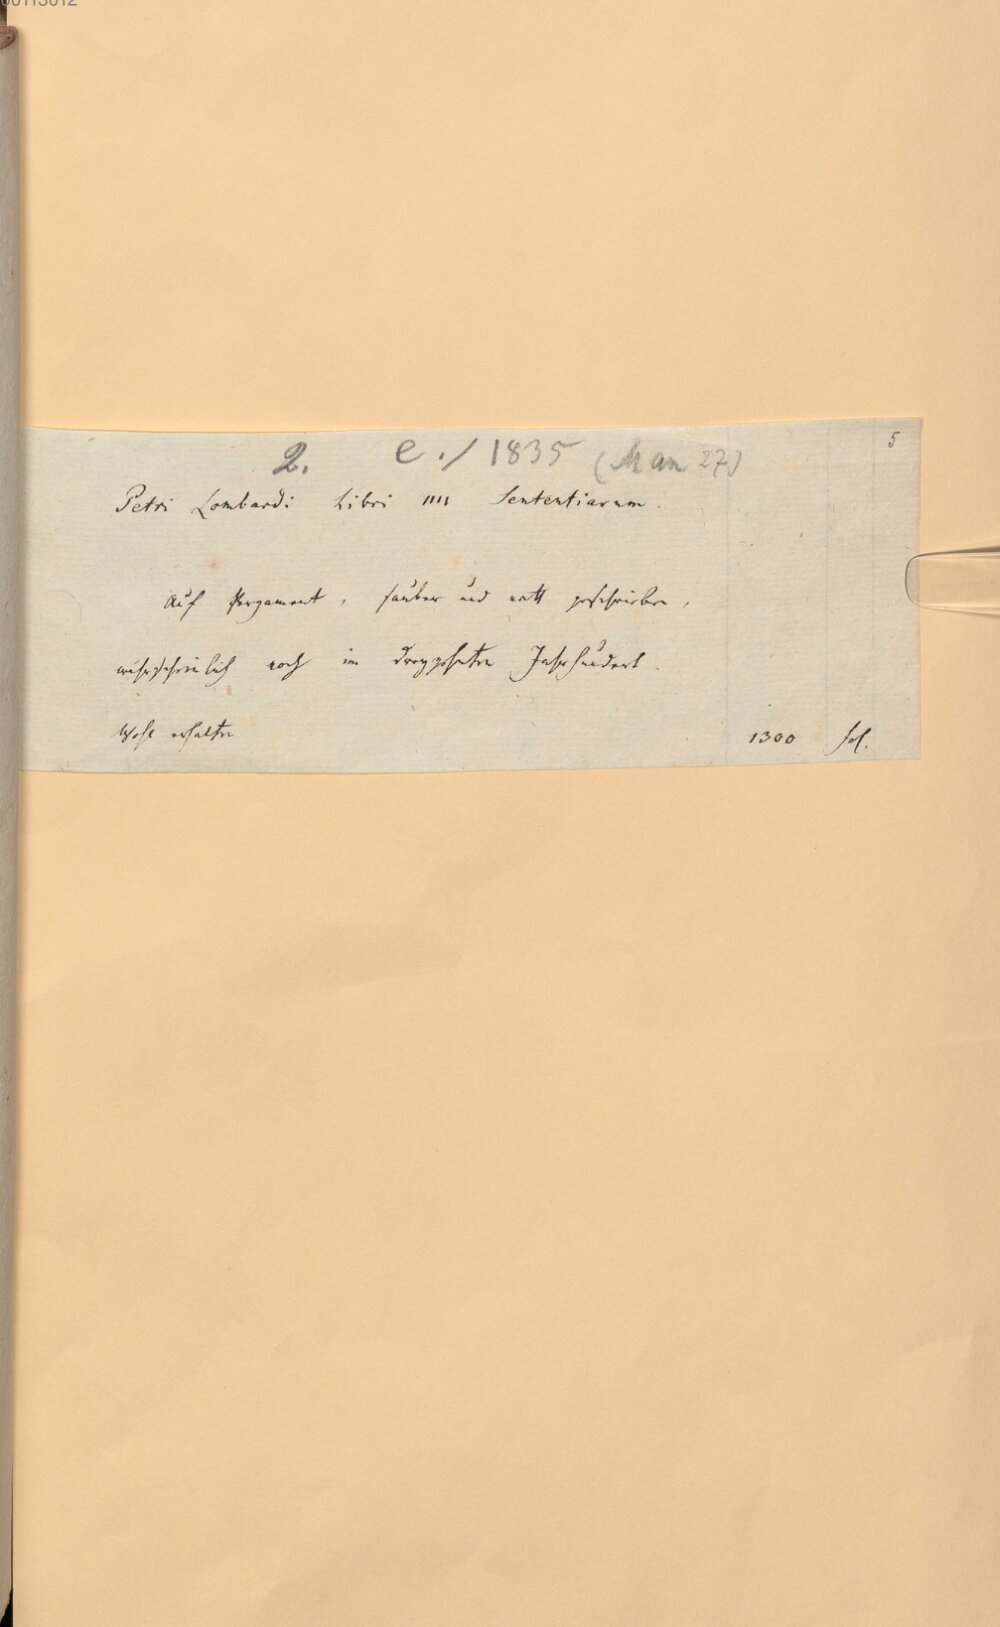 00113012
5
2. e./1835 (Man 27)
Petri Lombardi Libri IIII Sententiarum.
Auf Pergament, sauber und nett geschrieben,
wahrscheinlich noch im dreyzehnten Jahrhundert.
Wohl erhalten 1300 fol.